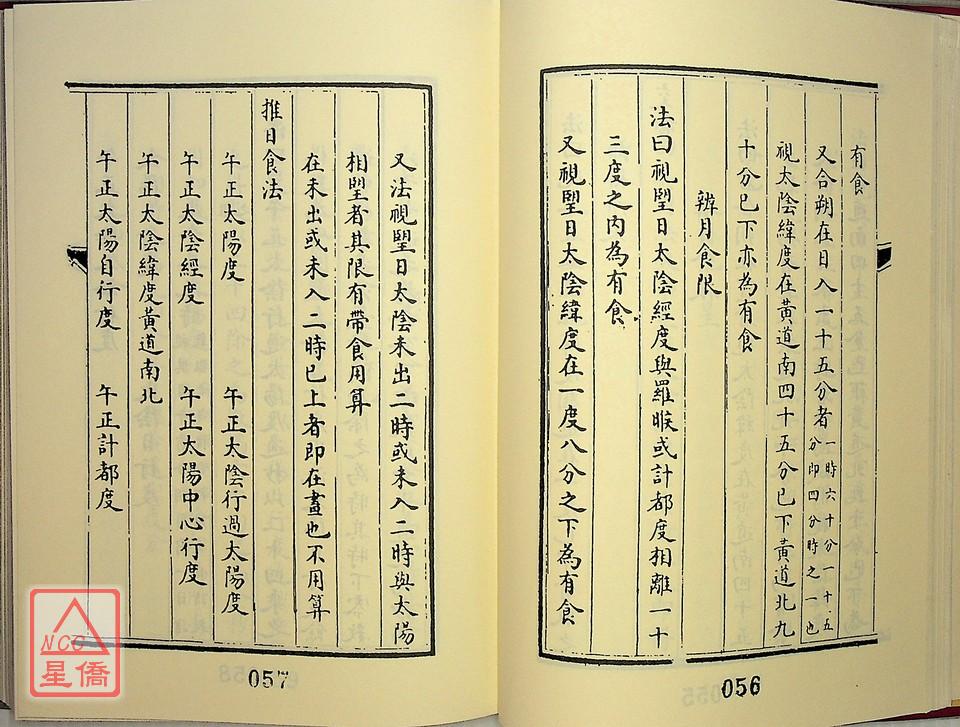 有食
又合朔在日入一十五分者一時六十分一十五分即四分時之一也
視太陰緯度在黃道南四十五分已下黃道北九
十分已下亦為有食
辨月食限
法曰視朢日太陰經度與羅睺或計都度相離一十
三度之內為有食
又視朢日太陰緯度在一度八分之下為有食
056
又法視朢日太陰未出二時或未入二時與太陽
相朢者其限有帶食用算
在未出或未入二時已上者即在晝也不用算
推日食法
午正太陽度 午正太陰行過太陽度
午正太陰經度 午正太陽中心行度
午正太陰緯度黃道南北
午正太陽自行度 午正計都度
057
NCC
星僑